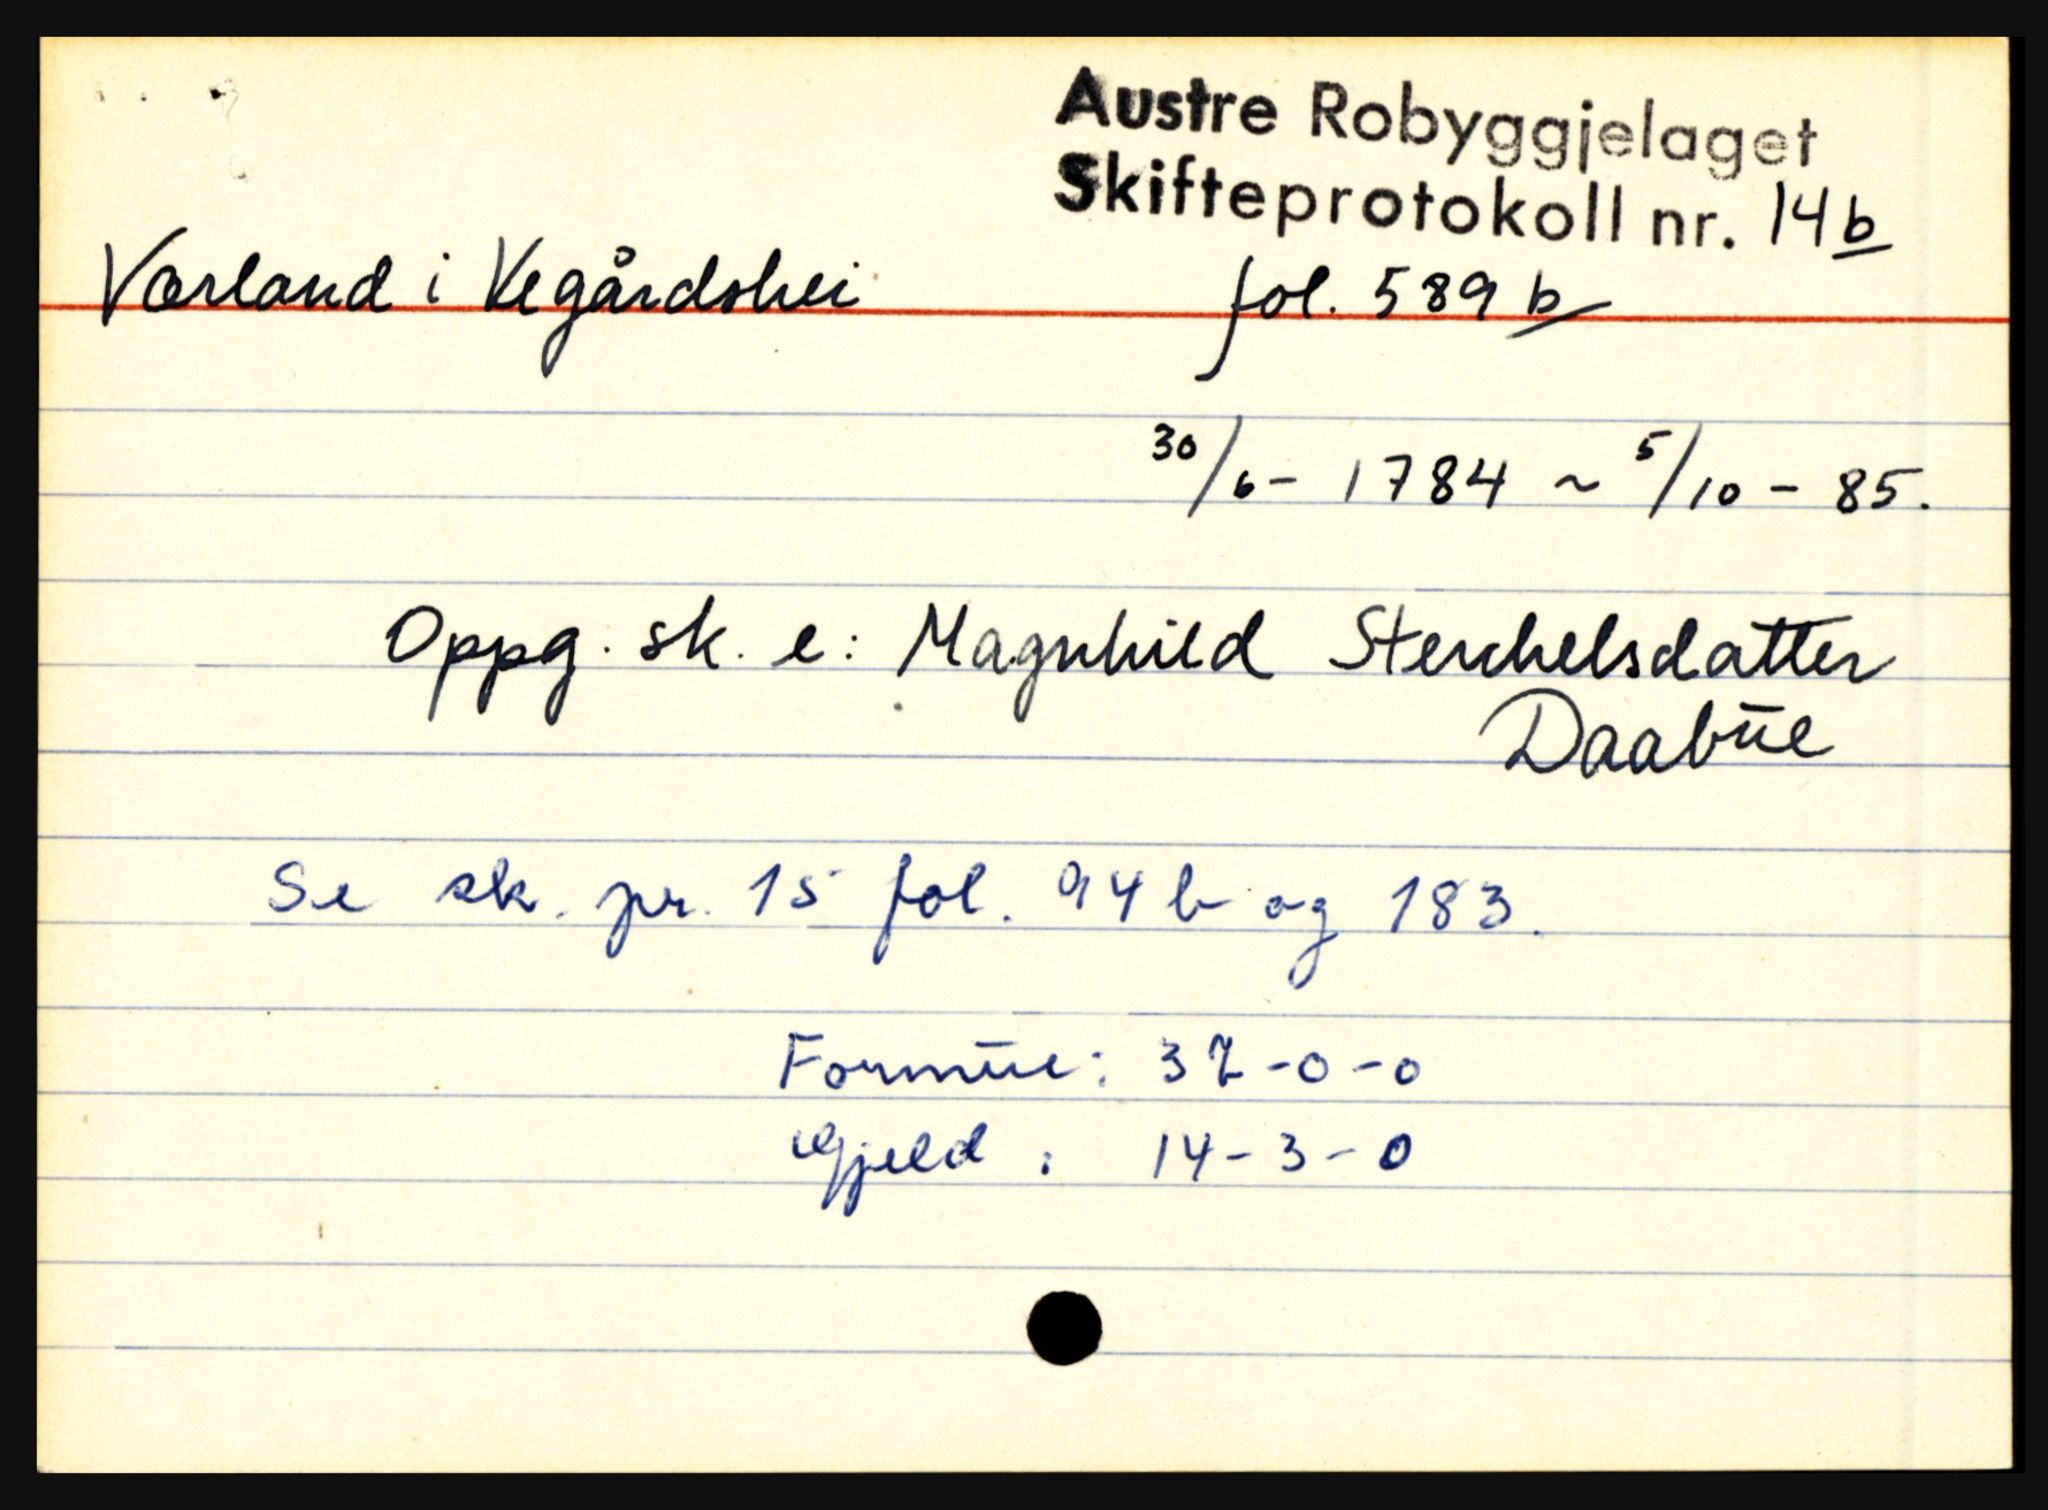 Austre Robyggjelaget
Skifteprotokoll nr. 14b
Værland i Vegårdshei fol. 589b
30/6 - 1784 ~ 5/10 - 85.
Oppg. sk. e: Magnhild Sterchelsdatter
Daabūe
Se sk. pr. 15 fol. 94b og 183.
Formūe: 37-0-0
Gjeld: 14-3-0